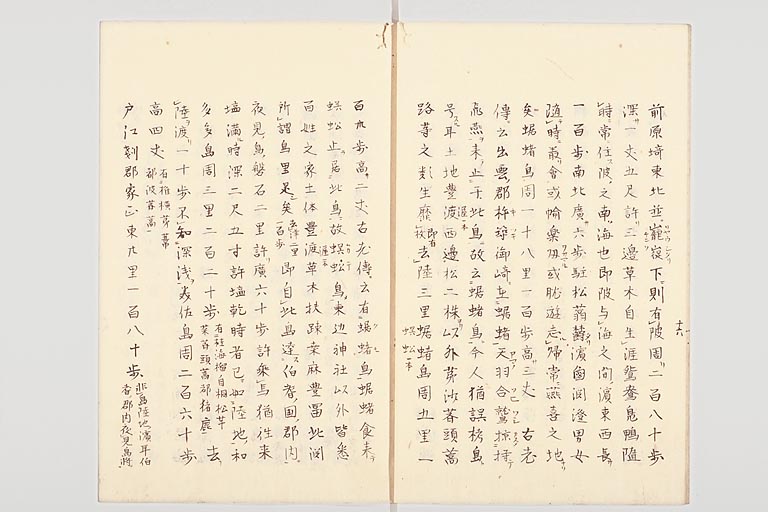 前原埼東北並巃嵸下則有陂周二百八十歩
深一丈五尺許三邊草木自生涯鴛鴦鳧鴨隨
時常住陂之南海也即陂与海之間濱東西長
一百歩南北廣六歩駐松蓊欝濱鹵淵澄男女
随時叢會或愉樂𢌞或貽遊忘歸常燕喜之地
矣蜛蝫島周一十八里一百歩高三丈古老
傳云出雲郡杵築御崎在蜛蝫天羽合鷲掠持
飛燕来止于此島故云蜛蝫島今人猶誤栲島
号耳土地豊渡西邊松二株以外茅沙莟頭蒿
路等之類生靡即有牧去陸三里蜛蝫島周五里一
蜈蚣
百卅歩高二丈古老傳云有蜛蝫島蜛蝫食来
蜈蚣止居此島故蜈蚣島東边神社以外皆悉
百姓之家土体豊渡草木扶踈桒麻豊冨此澗
所謂島里是矣去津二里一百歩即自此島達伯耆国郡内
夜見島盤石二里許廣六十歩許乗馬猶往来
塩満時深二尺五寸許塩乾時者已如陸地和
多々島周三里二百二十歩有椎海榴自桐松芋菜莟頭蒿都猪鹿去
陸渡一十歩不知深浅美佐島周二百六十歩
高四丈有椎橿茅葦都波莟蒿
戸江剗郡家正東廾里一百八十歩非島陸地濱耳伯耆郡内夜見島將
十六